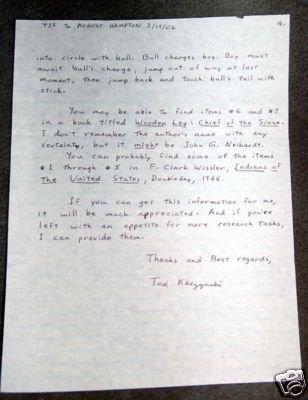 TJK to AUGUST HAMPTON 3/19/02 4.
into circle with bull. Bull charges boy. Boy must
await bull's charge, jump out of way at last
moment, then jump back and touch bull's tail with
stick.
You may be able to find items #6 and #7
in a book titled Wooden Leg: Chief of the Sioux.
I don't remember the author's name with any
certainty, but it might be John G. Neihardt.
You can probably find some of the items
#1 through #5 in F. Clark Wissler, Indians of
the United States, Doubleday, 1966.
If you can get this information for me,
it will be much appreciated. And if you're
left with an appetite for more research tasks,
I can provide them.
Thanks and Best regards,
Ted Kaczynski
ebay